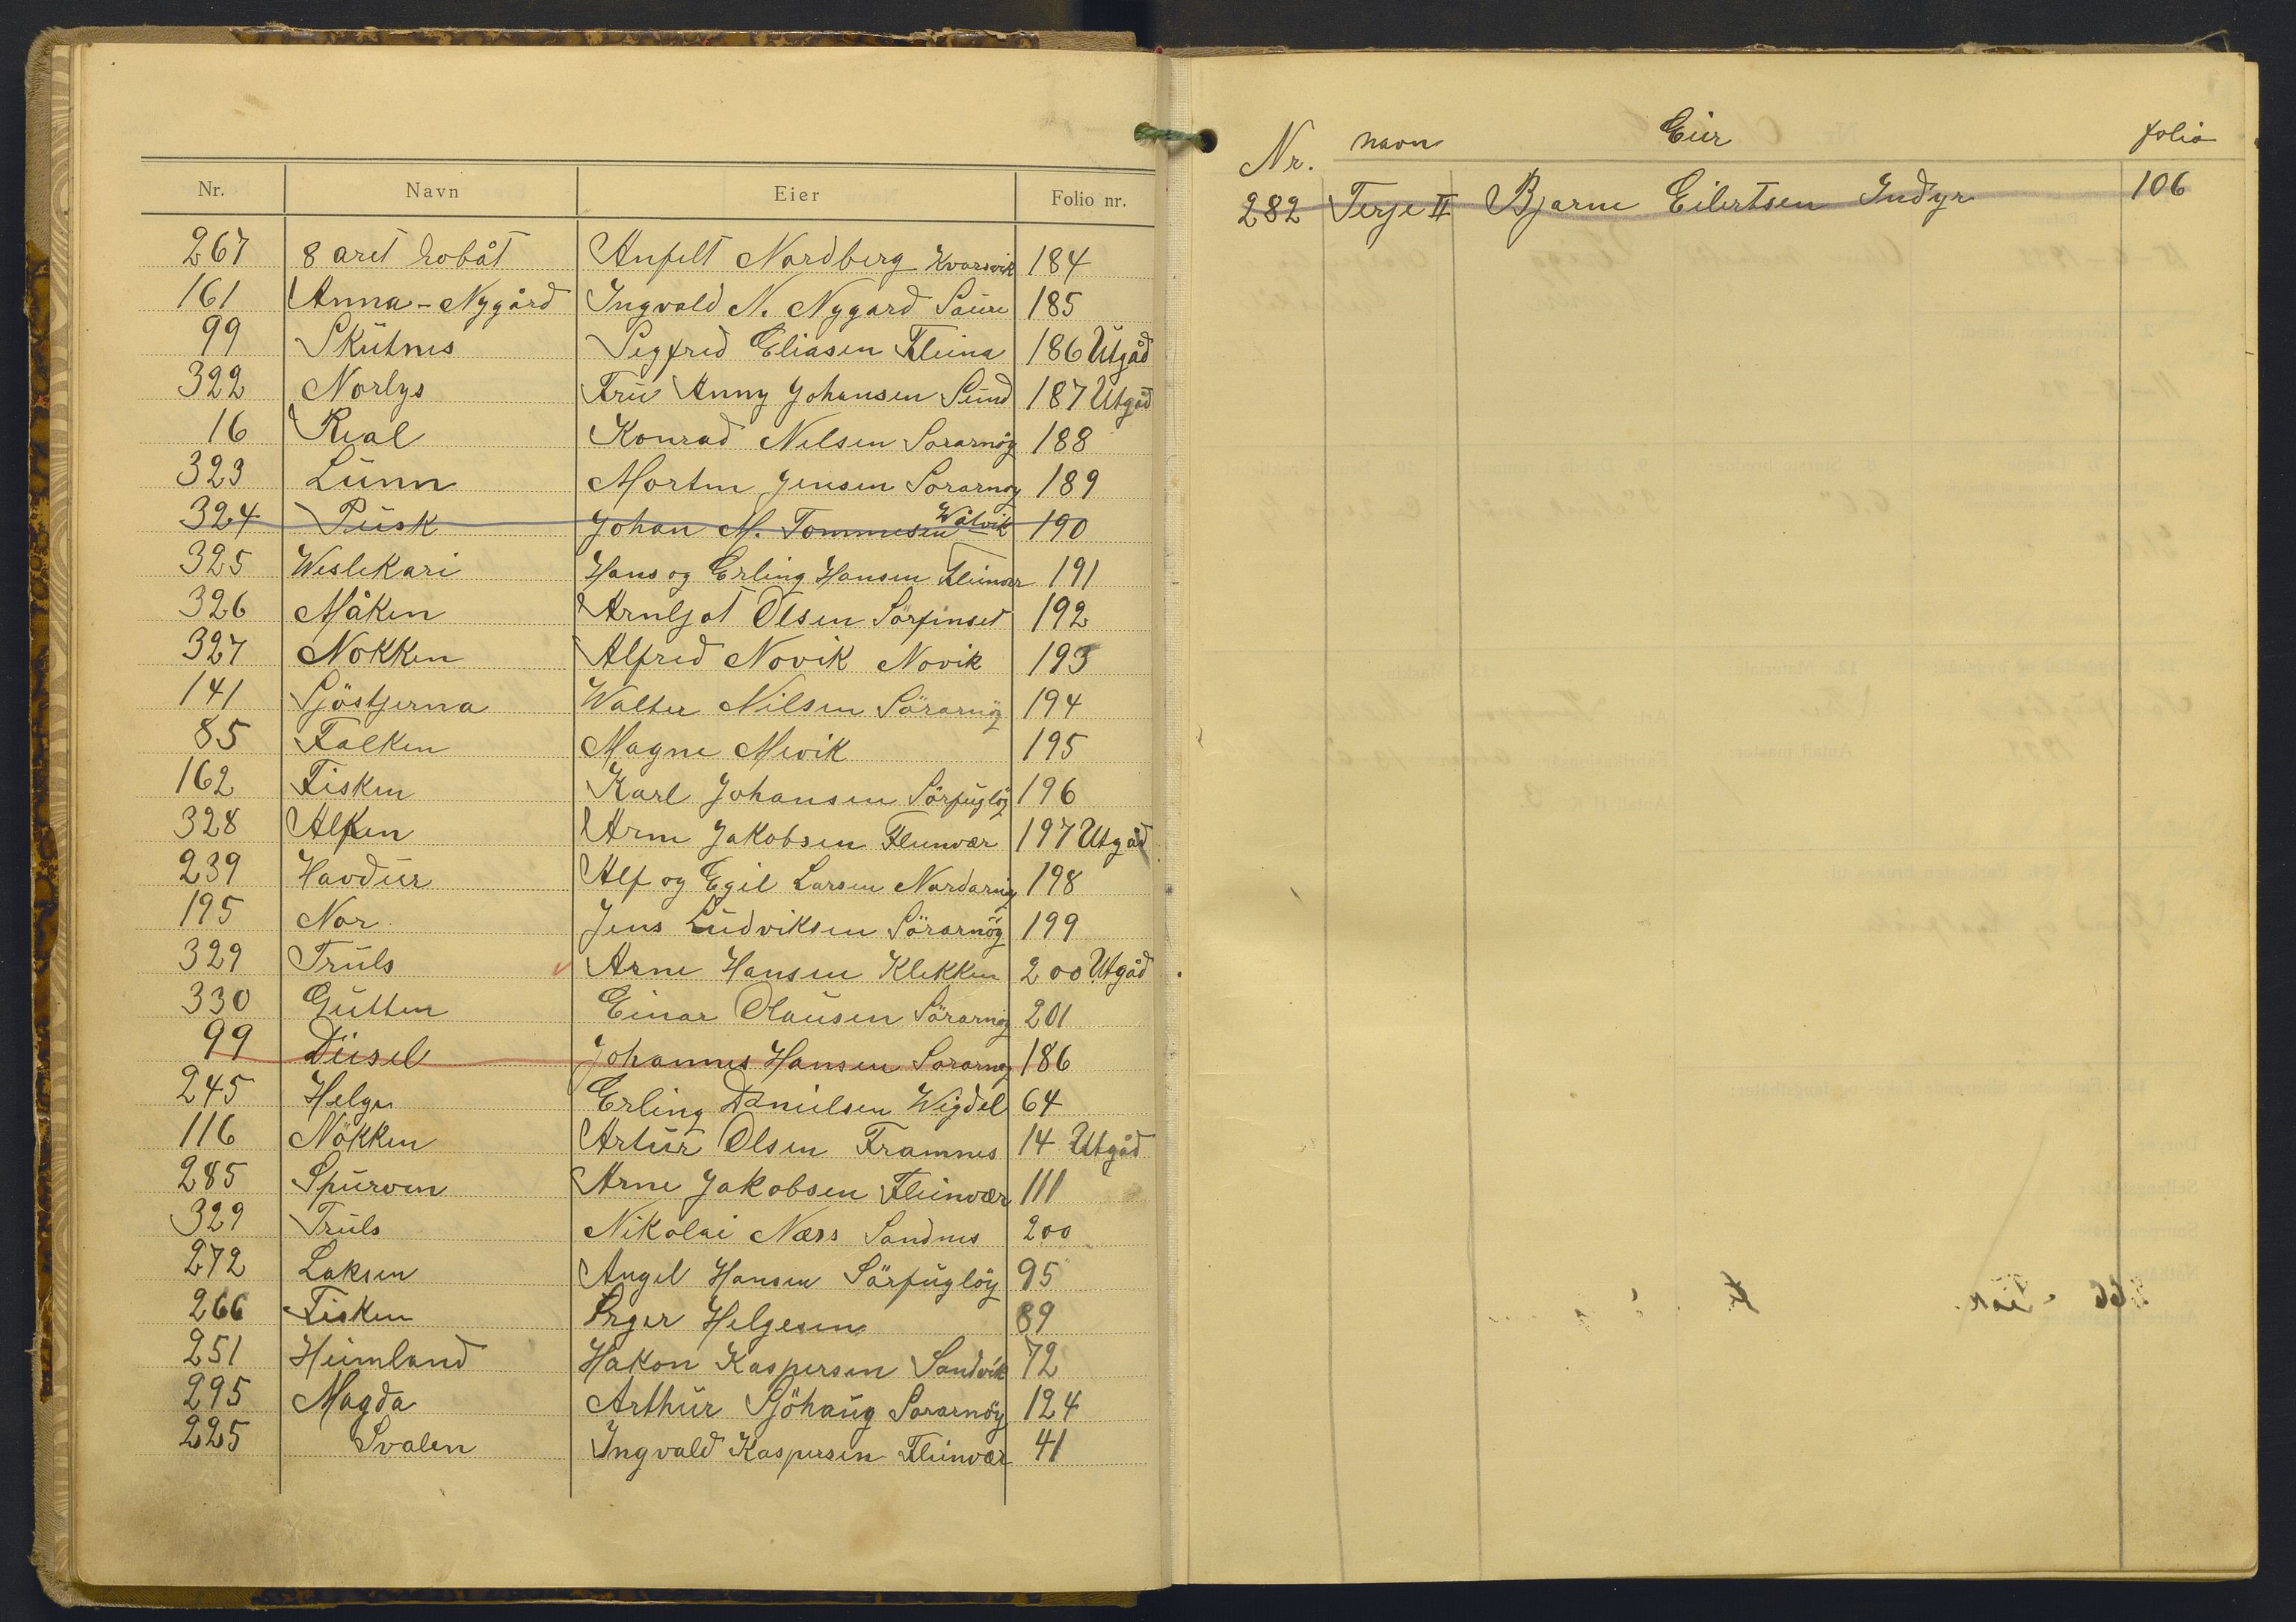 Nr. Navn Eier Folio nr.
267 8 aret robåt Anfelt Nordberg Kvarsvik 184
161 Anna-Nygård Ingvald N. Nygard Saura 185
99 Skutnes Segfred Eliasen Fleina 186 Utgåd
322 Norlys Fru Anny Johansen Sund 187 Utgåd
16 Real Konrad Nelsen Sorarnöy 188
323 Lunn Morten Jensen Sorarnoy 189
324 Pusk Johan M. Tommesen Våtvik 190
325 Weslekari Hans og Erling Hansen Fleinvær 191
326 Måken Arnljot Olsen Sörfinset 192
327 Nokken Alfred Novik Novik 193
141 Sjöstjerna Walter Nilsen Sörarnöy 194
85 Falken Magne Mevik 195
162 Fisken Karl Johansen Sörfuglöy 196
328 Alken Arne Jakobsen Fleinvær 197 Utgåd
239 Havdur Alf og Egil Larsen Nordarnöy 198
195 Nor Jens Ludviksen Sörarnöy 199
329 Truls Arne Hansen Klekken 200 Utgåd
330 Gutten Einar Olausen Sörarnöy 201
99 Diisel Johannes Hansen Sorarnoy 186
245 Helge Erling Danielsen Wigdel 64
116 Nökken Artur Olsen Framnes 14 Utgåd
285 Spurven Arne Jakobsen Fleinvær 111
329 Truls Nikolai Næss Sandnes 200
272 Laksen Angel Hansen Sörfuglöy 95
266 Fisken Helgesen 89
251 Heimland Hakon Kaspersen Sandvik 72
295 Magda Arthur Sjöhaug Sorarnöy 124
225 Svalen Ingvald Kaspersen Fleinvær 41
Nr. navn Eier folio
282 Terje II Bjarne Eilertsen Indyr 106